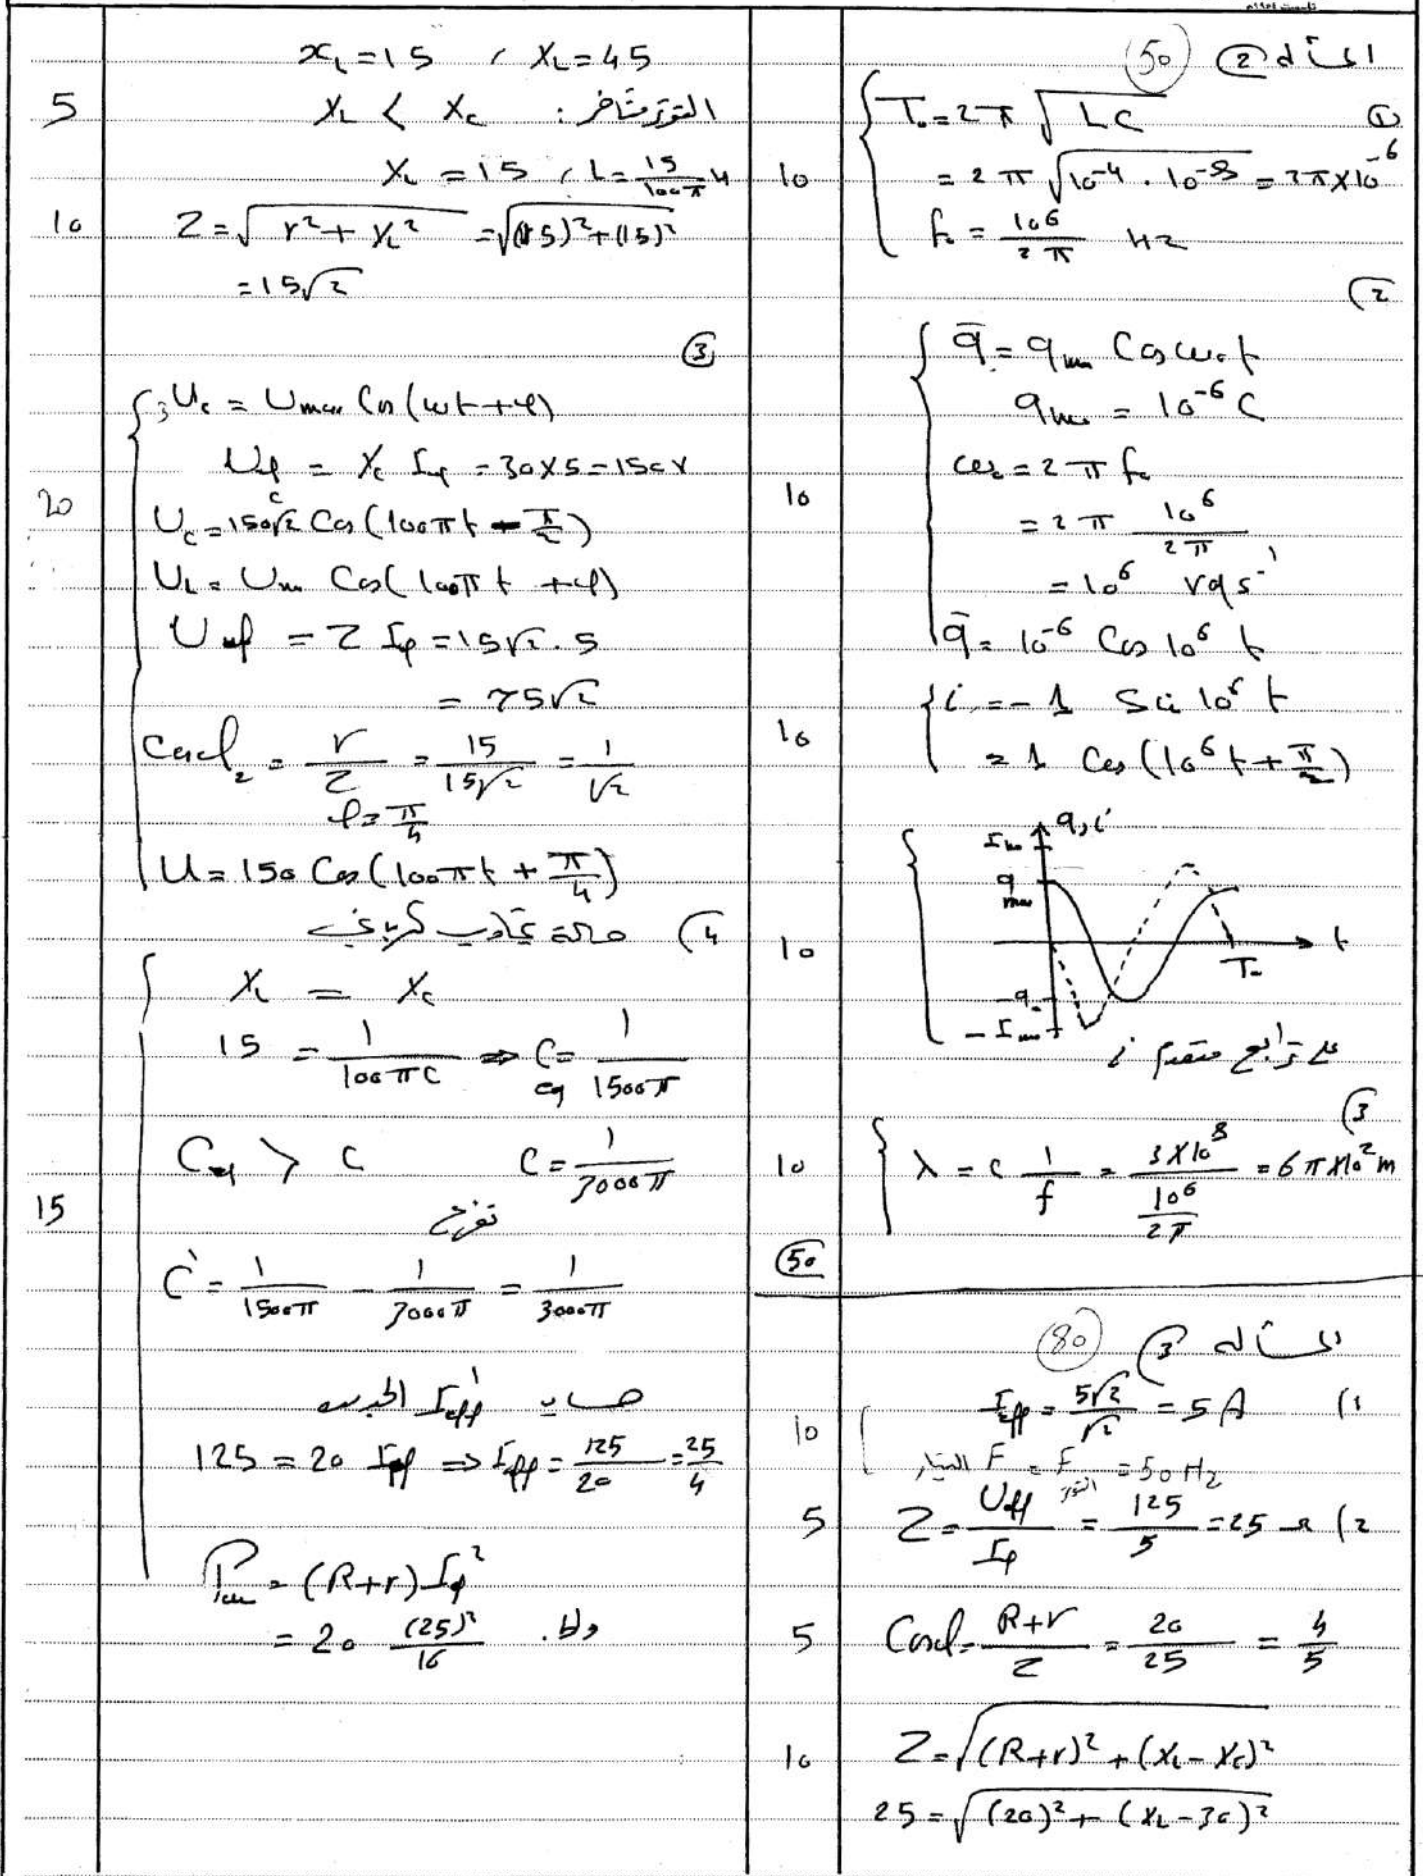 المسألة ② (50)
① T₀ = 2π √LC
10
= 2π √10⁻⁴ . 10⁻⁸ = 2π×10⁻⁶
f₀ = 10⁶/2π Hz
(2
q̄ = qmax Cos ω₀t
qmax = 10⁻⁶ C
ω₀ = 2π f₀
10
= 2π 10⁶/2π
= 10⁶ rad s⁻¹
q̄ = 10⁻⁶ Cos 10⁶ t
i = - 1 Sin 10⁶ t
10
= 1 Cos (10⁶ t + π/2)
q, i
Imax
qmax
10
t
T₀
-q
-Imax
على ترابع متقدم i
(3
10
λ = c 1/f = 3×10⁸ / (10⁶/2π) = 6π×10² m
(50)
المسألة (3 (80)
(1 Ieff = 5√2/√2 = 5 A
10
التيار F = F التوتر = 50 Hz
5
(2 Z = Ueff/Ieff = 125/5 = 25 Ω
5
Cosφ = R+r/Z = 20/25 = 4/5
10
Z = √(R+r)² + (XL - Xc)²
25 = √(20)² + (XL - 30)²
XL = 15 ، XL = 45
5
التوتر متأخر : XL < Xc
XL = 15 ، L = 15/100π H
10
Z = √r² + XL² = √(15)² + (15)²
= 15√2
③
Uc = Umax Cos (ωt + φ)
Ueffc = Xc Ieff = 30×5 = 150 V
20
Uc = 150√2 Cos (100πt - π/2)
UL = Um Cos (100πt + φ)
Ueff = Z Ieff = 15√2 . 5
= 75√2
Cosφ₂ = r/Z = 15/15√2 = 1/√2
φ = π/4
U = 150 Cos (100πt + π/4)
(4 حالة تجاوب كهربائي
XL = Xc
15 = 1/100πC ⇒ Ceq = 1/1500π
Ceq > C C = 1/3000π
15
تفرع
C' = 1/1500π - 1/3000π = 1/3000π
حساب I'eff الجديدة
125 = 20 Ieff ⇒ Ieff = 125/20 = 25/4
Pav = (R+r) Ieff²
= 20 (25)²/16 واط.